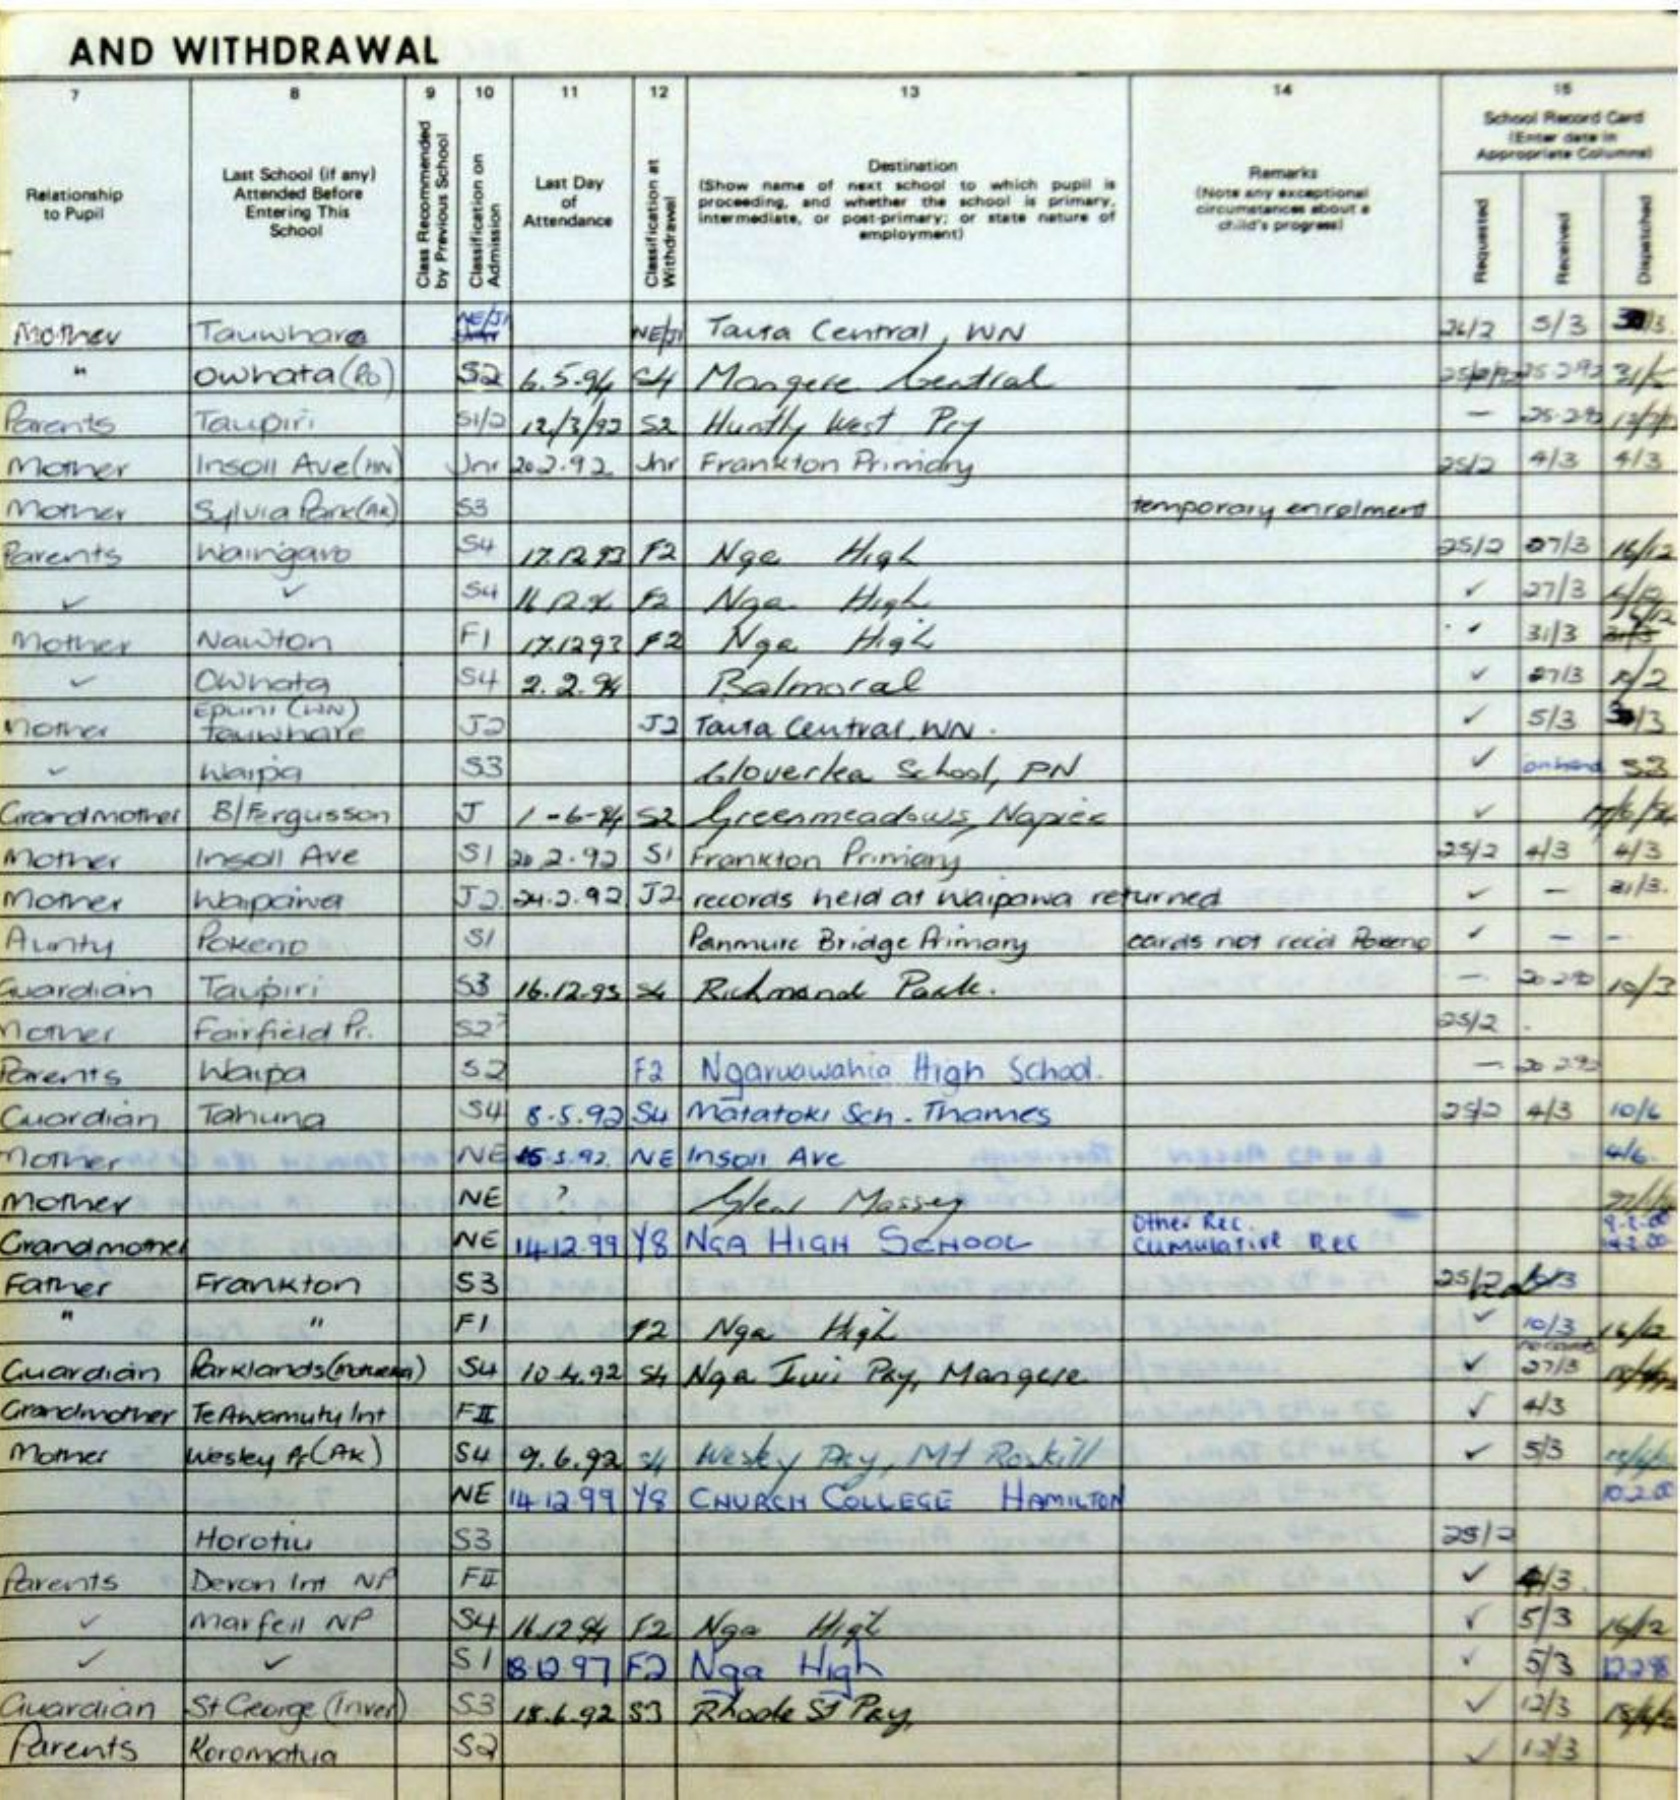 AND WITHDRAWAL
7 8 9 10 11 12 13 14 15
Relationship to Pupil
Last School (if any) Attended Before Entering This School
Class Recommended by Previous School
Classification on Admission
Last Day of Attendance
Classification at Withdrawal
Destination
(Show name of next school to which pupil is
proceeding, and whether the school is primary,
intermediate, or post-primary; or state nature of
employment)
Remarks
(Note any exceptional
circumstances about a
child's progress)
School Record Card
(Enter date in
Appropriate Columns)
Requested Received Dispatched
Mother Tauwhare NE/J1 NE/J1 Taita Central, WN 26/2 5/3
" Owhata (Ro) S2 6.5.94 S4 Mangere Central
Parents Taupiri S1/2 12/3/92 S2 Huntly West Pry — 25.2.92
Mother Insoll Ave (HN) Jnr 20.2.92 Jnr Frankton Primary 25/2 4/3 4/3
Mother Sylvia Park (AK) S3 temporary enrolment
Parents Waingaro S4 17.12.93 F2 Nga High 25/2 27/3 16/12
✓ ✓ S4 F2 Nga High ✓ 27/3
Mother Nawton F1 17.12.93 F2 Nga High ✓ 31/3 16/12
✓ Owhata S4 2.2.94 Balmoral ✓ 27/3
Mother Epuni (WN) Tauwhare J2 J2 Taita Central, WN. ✓ 5/3
✓ Waipa S3 Cloverlea School, PN ✓ on hand
Grandmother B/Fergusson J 1-6-94 S2 Greenmeadows, Napier ✓
Mother Insoll Ave S1 20.2.92 S1 Frankton Primary 25/2 4/3 4/3
Mother Waipawa J2 24.2.92 J2 records held at Waipawa returned ✓ — 31/3.
Aunty Pokeno S1 Panmure Bridge Primary cards not rec'd Pokeno ✓ — –
Guardian Taupiri S3 16.12.93 S4 Richmond Park. — 20.2.92 10/3
Mother Fairfield Pr. S2? 25/2
Parents Waipa S2 F2 Ngaruawahia High School. — 20.2.92
Guardian Tahuna S4 8.5.92 S4 Matatoki Sch. Thames 25/2 4/3 10/6
Mother NE 15.5.92. NE Insoll Ave 4/6.
Mother NE ? Glen Massey
Grandmother NE 14.12.99 Y8 NGA HIGH SCHOOL Other Rec. Cumulative Rec
Father Frankton S3 25/2
" " F1 F2 Nga High ✓ 10/3 16/12
Guardian Parklands S4 10.4.92 S4 Nga Iwi Pry, Mangere ✓ 27/3
Grandmother Te Awamutu Int FII ✓ 4/3
Mother Wesley Pr (AK) S4 9.6.92 S4 Wesley Pry, Mt Roskill ✓ 5/3
NE 14.12.99 Y8 CHURCH COLLEGE HAMILTON 10.2.00
Horotiu S3 25/2
Parents Devon Int NP FII ✓ 4/3.
✓ Marfell NP S4 16.12.94 F2 Nga High ✓ 5/3 16/12
✓ ✓ S1 18.12.97 F2 Nga High ✓ 5/3 12.2.98
Guardian St George (Inver) S3 18.6.92 S3 Rhode St Pry, ✓ 12/3
Parents Koromatua S2 ✓ 12/3